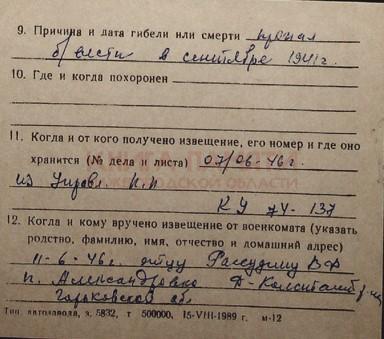 9. Причина и дата гибели или смерти пропал
б/вести в сентябре 1941 г.
10. Где и когда похоронен
11. Когда и от кого получено извещение, его номер и где оно
хранится (№ дела и листа) 07/06-46 г.
из Управл.
КУ 74-137
12. Когда и кому вручено извещение от военкомата (указать
родство, фамилию, имя, отчество и домашний адрес)
11-6-46 г. отцу ВФ
п. Александровка Д-Константин
Горьковской об.
Тип. автозавода, з. 5832, т 500000, 15-VIII-1989 г. м-12